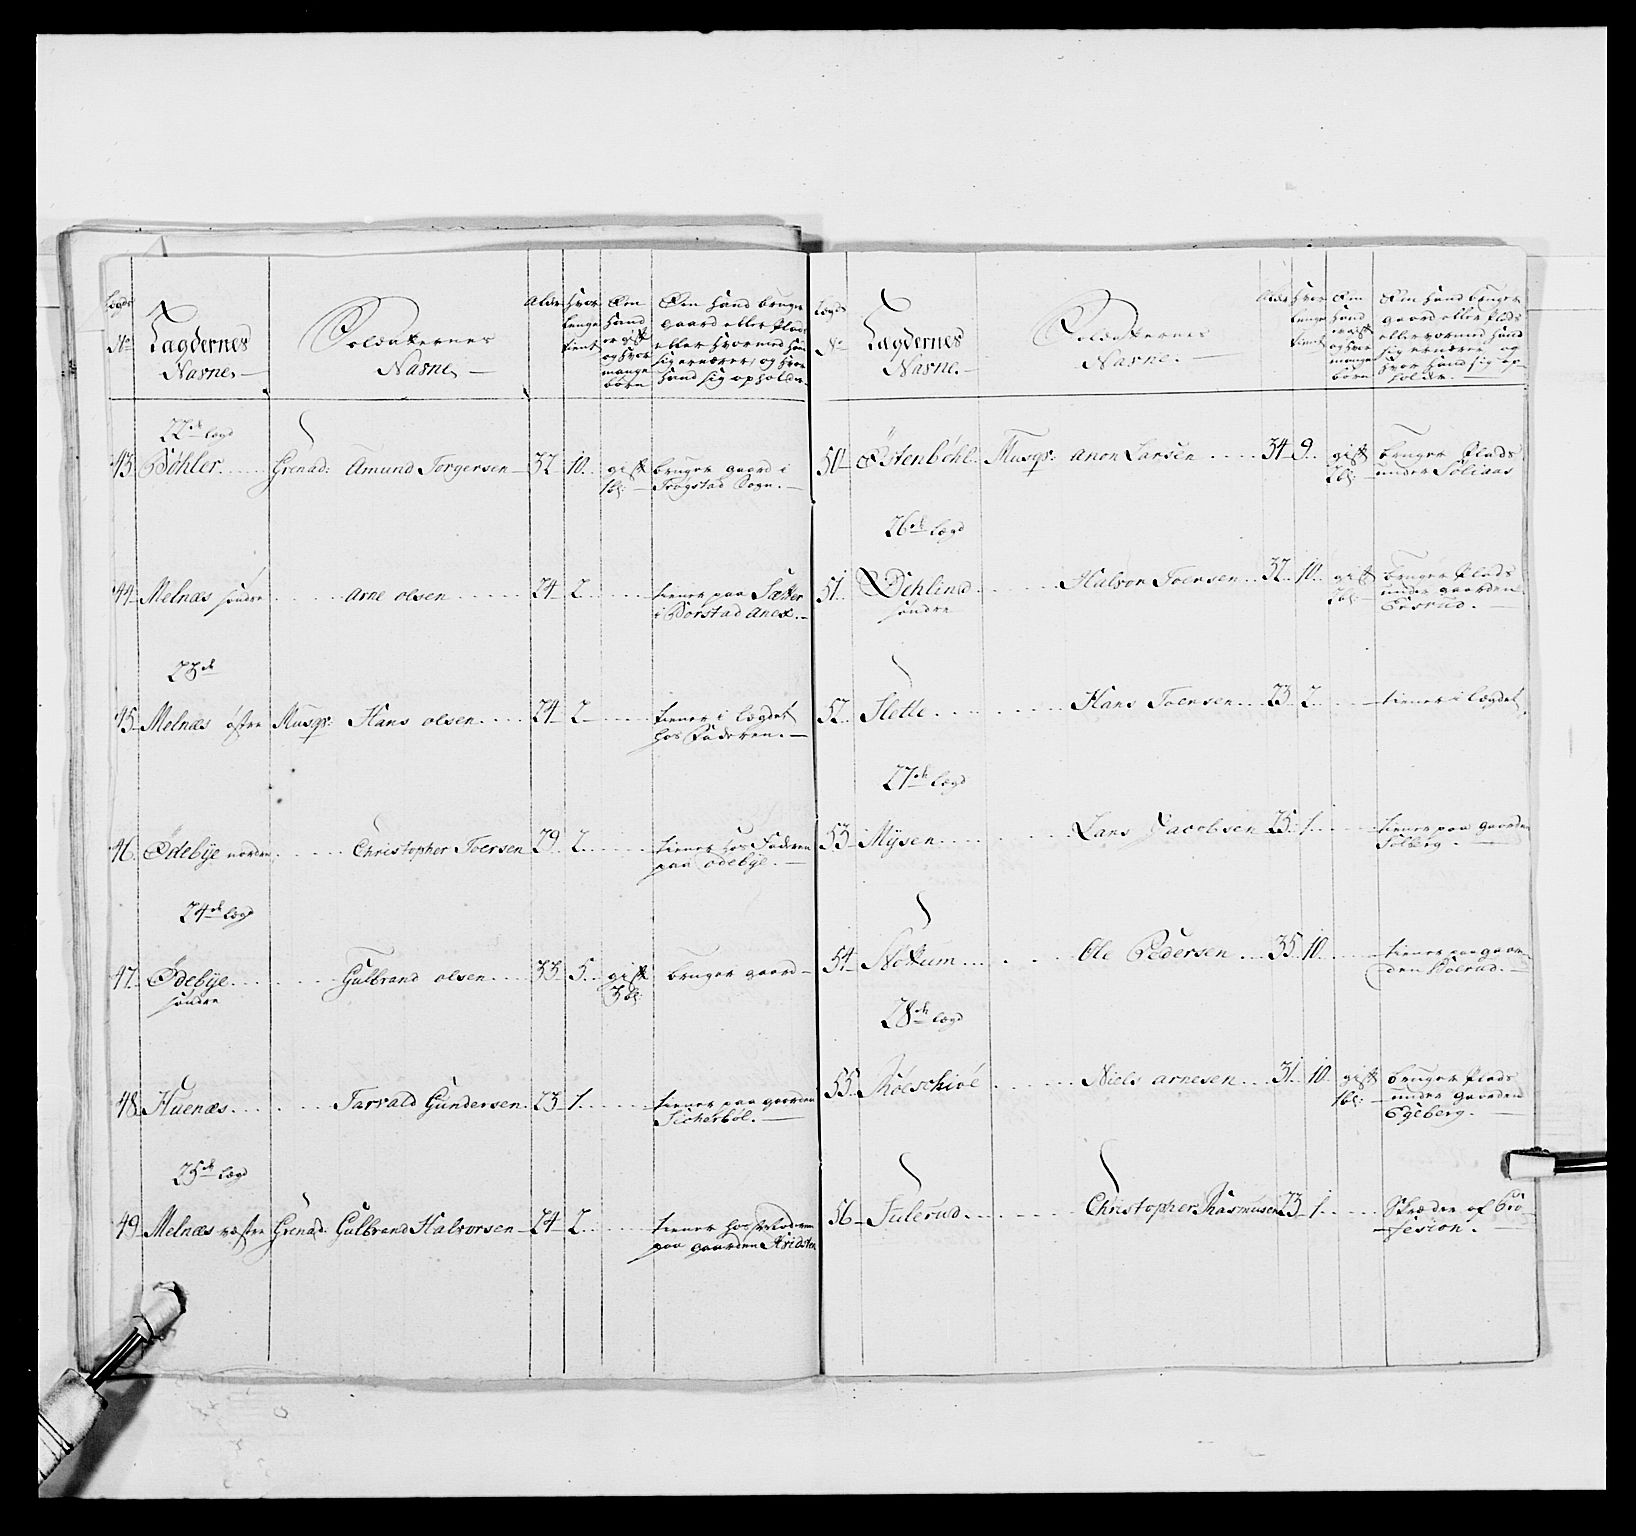 Lægds
No
Lægdernes
Nafne.
Soldaternes
Nafne
Alder
Hvor
længe
tient
Om
hand
er gift
og hvor
mange
børn
Om hand bruger
gaard eller Plads
eller hvormed hand
sig ernærer, og hvor
hand sig opholder
22de Lægd
43. Bøhler..... Grenad: Amund Torgersen 32 10. gift bruger gaard i
1 b: Trøgstad Sogn.
44 Melnæs søndre ..... Arne Olsen ..... 24 2 ..... tiener paa Sætter
i Borstad Anex.
23de
45 Melnæs østre Musqr: Hans Olsen ..... 24 2 ..... tiener i lægdet
hos Faderen.
46. Ødebye norden ..... Christopher Toersen 29 2 ..... tiener hos Faderen
paa Ødebye.
24de Lægd
47. Ødebye ..... Gulbrand Olsen .... 33 5. gift bruger gaard
søndre 3 b:
48 Huenæs ..... Tarvald Gundersen. 23 1 ..... tiener paa gaarden
25de Lægd
49 Melnæs væstre Grenad. Gulbrand Halvorsen 24 2 ..... tiener hos
paa gaarden
Lægds
No
Lægdernes
Nafne.
Soldaternes
Nafne.
Alder
Hvor
længe
tient
Om
hand
er gift
og hvor
mange
børn
Om hand bruger
gaard eller Plads
eller hvormed hand
sig ernærer og
hvor hand sig op-
holder.
50 Østenbøhl Musqr: Anon Larsen .... 34 9. gift bruger Plads
2 b: under Soliaas
26de Lægd
51. Dehlind ..... Halvon Toensen .. 32 10. gift bruger Plads
søndre 2 b: under gaarden
52. Slette ..... Hans Toensen .. 23 2 ..... tiener i lægdet
27de Lægd
53 Mysen ..... Lars Jacobsen 25 1 ..... tiener paa gaarden
Solberg.
54 Slottum ..... Ole Pedersen ... 35 10 ..... tiener paa gaar-
den
28de Lægd
55 ..... Niels Arnesen ... 31 10 gift bruger Plads
1 b: under gaarden
Egeberg.
56 Julerud ..... Christopher Rasmusen 23 1 ..... Skræder af Pro-
fesion.